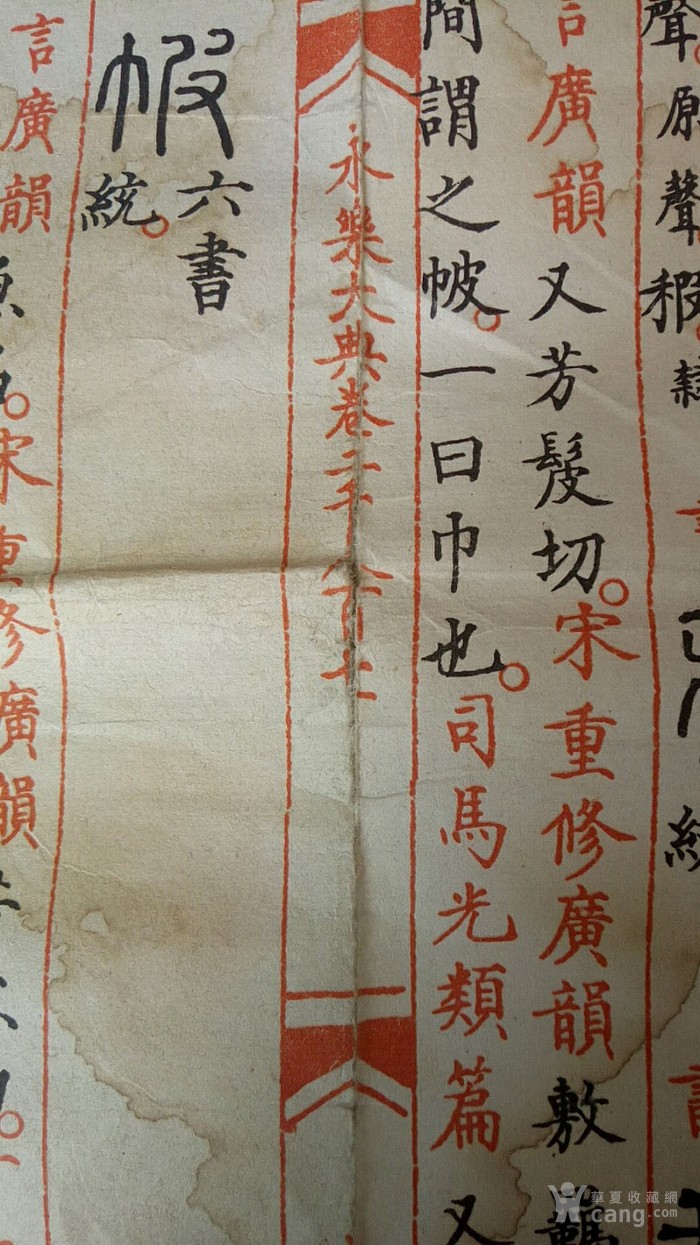 聲。原聲
言廣韻又芳髲切。宋重修廣韻敷羈
間謂之帔。一曰巾也。司馬光類篇又
永樂大典卷二千八百七
六書
統。
言廣韻
宋重修廣韻
華夏收藏網
cang.com